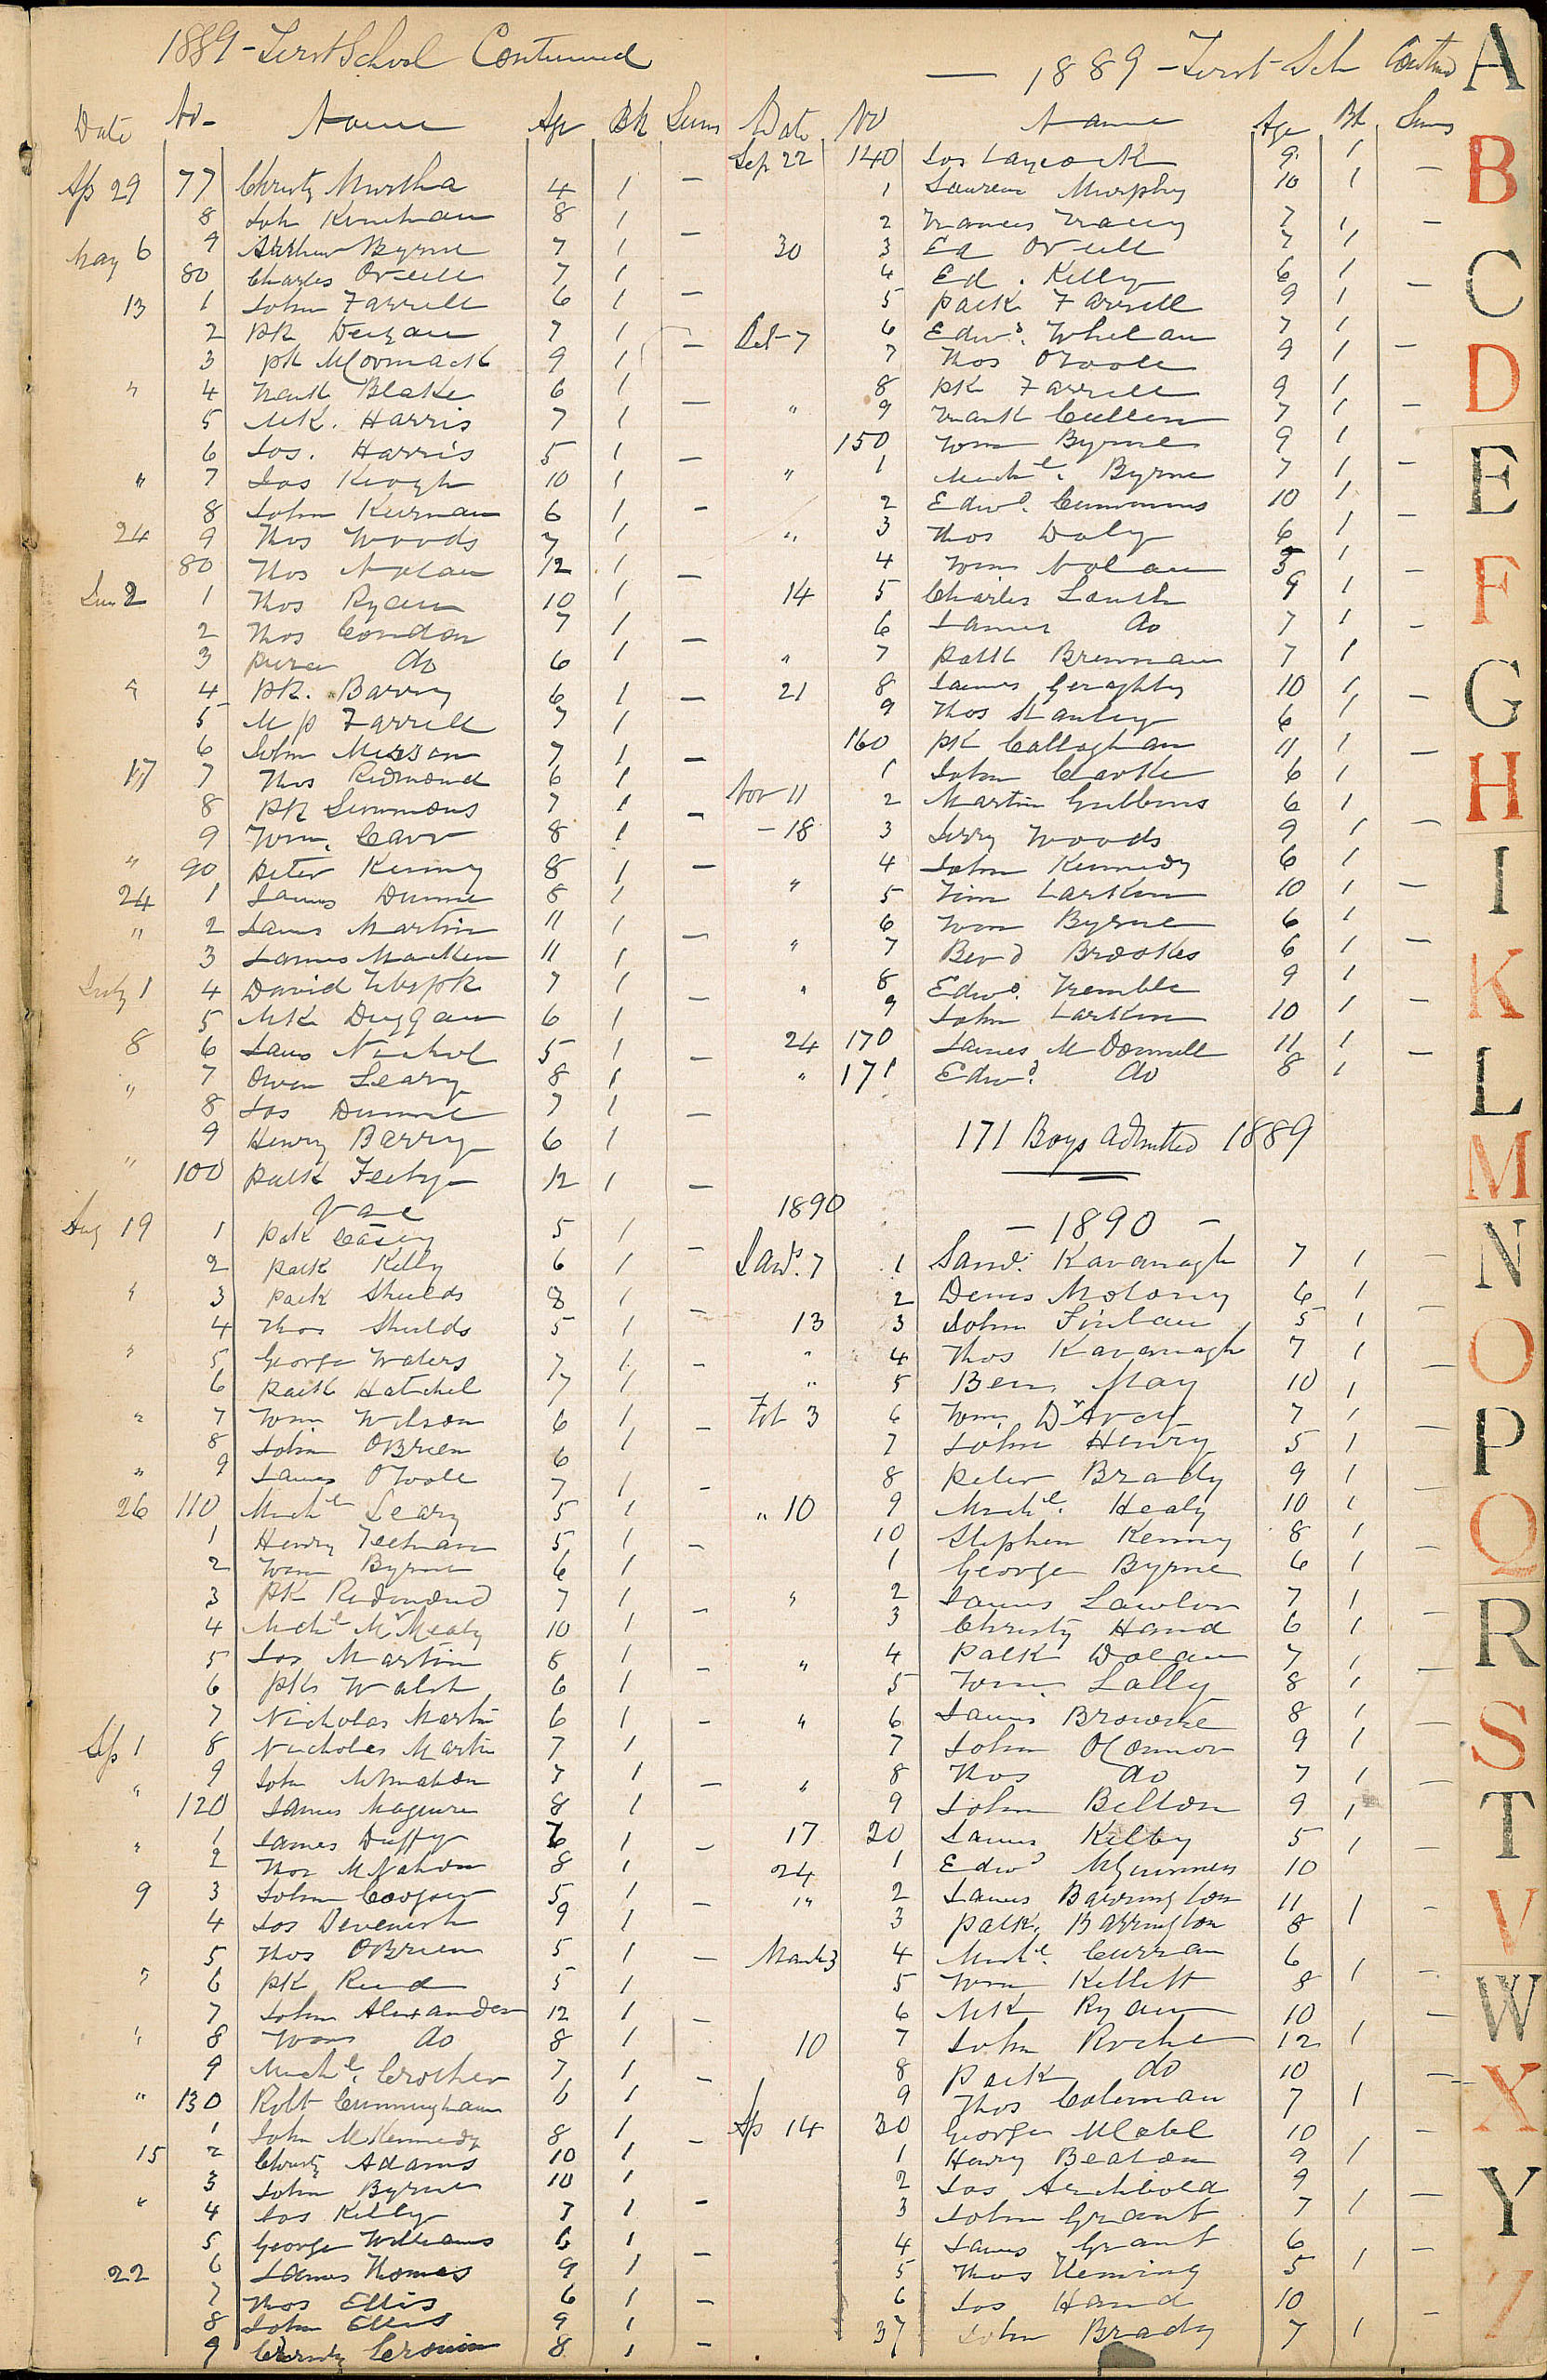 1889 - First School Continued
Date No- Name Age Bk Sums
Ap 29 77 Christy Murtha 4 1 —
8 Joh Kinehan 8 1
May 6 9 Arthur Byrne 7 1 —
80 Charles ONeill 7 1
13 1 John Farrell 6 1 —
2 Pk Deegan 7 1
3 Pk McCormack 9 1 —
" 4 Frank Blake 6 1
5 Mk. Harris 7 1 —
6 Jos. Harris 5 1
" 7 Jas Keogh 10 1 —
8 John Kiernan 6 1
24 9 Thos Woods 7 1 —
80 Thos Nolan 12 1
Jun 2 1 Thos Ryan 10 1 —
2 Thos Condon 7 1
3 Pierce do 6 1 —
" 4 Pk. Barry 6 1
5 M P Farrell 7 1 —
6 John Musson 7 1
17 7 Thos Redmond 6 1 —
8 Pk Simmons 7 1
9 Wm. Carr 8 1 —
" 90 Peter Kenny 8 1
24 1 James Dunne 8 1 —
" 2 James Martin 11 1
3 James Macken 11 1 —
July 1 4 David 7 1
5 Mk Duggan 6 1 —
8 6 James Nichol 5 1
" 7 Owen Leary 8 1 —
8 Jos Dunne 7 1
9 Henry Barry 6 1
" 100 Patk Feehy 12 1 —
Vac
Aug 19 1 Patk Casey 5 1
2 Patk Kelly 6 1 —
" 3 Patk Shields 8 1
4 Thos Shields 5 1 —
" 5 George Waters 7 1
6 Patk Hatchel 7 1 —
" 7 Wm Wilson 6 1
8 John OBrien 6 1 —
" 9 James OToole 7 1
26 110 Michl Leary 5 1 —
1 Henry Teehan 5 1
2 Wm Byrne 6 1 —
3 Pk Redmond 7 1
4 Michl McNealy 10 1 —
5 Jos Martin 8 1
6 Pk Walsh 6 1 —
7 Nicholas Martin 6 1
Sep 1 8 Nicholas Martin 7 1 —
9 John McMahon 7 1
" 120 James Maguire 8 1 —
" 1 James Duffy 6 1
2 Thos McMahon 8 1 —
9 3 John Cooper 5 1
4 Jos Devenish 9 1 —
5 Thos OBrien 5 1
" 6 Pk Reid 5 1 —
7 John Alexander 12 1
" 8 Wm do 8 1 —
9 Michl. Crother 7 1
" 130 Robt Cunningham 6 1 —
1 John McKennedy 8 1
15 2 Christy Adams 10 1 —
3 John Byrne 10 1
" 4 Jas Kelly 7 1 —
5 George Williams 6 1
22 6 James Thomas 9 1 —
7 Thos Ellis 6 1
8 John Ellis 9 1 —
9 Christy Cronin 8 1 —
— 1889 - First Sch Contind
Date No Name Age Bk Sums
Sep 22 140 Jos Laycock 9 1 —
1 Laurence Murphy 10 1
2 Frances Tracey 7 1 —
30 3 Ed ONeill 7 1
4 Ed. Kelly 6 1 —
5 Patk Farrell 9 1
Oct 7 6 Edwd. Whelan 7 1 —
7 Thos OToole 9 1
8 Pk Farrell 9 1 —
" 9 Frank Cullen 7 1
150 Wm Byrne 9 1 —
" 1 Michl. Byrne 7 1
2 Edwd. Cummins 10 1 —
" 3 Thos Daly 6 1
4 Wm Nolan 5 1 —
14 5 Charles Louth 9 1
6 James do 7 1 —
" 7 Patk Brennan 7 1
21 8 James Geraghty 10 1 —
9 Thos Stanley 6 1
160 Pk Callaghan 11 1 —
1 John Clarke 6 1
Nov 11 2 Martin Gubbins 6 1 —
- 18 3 Jerry Woods 9 1
4 John Kennedy 6 1 —
" 5 Tim Larkin 10 1
6 Wm Byrne 6 1 —
" 7 Bernd Brookes 6 1
" 8 Edwd. Tremble 9 1 —
9 John Larkin 10 1
24 170 James McDonnell 11 1 —
" 171 Edwd. do 8 1
171 Boys admitted 1889
1890
— 1890 —
Jany. 7 1 Saml. Kavanagh 7 1 —
2 Denis Molony 6 1
13 3 John Finlan 5 1 —
" 4 Thos Kavanagh 7 1
" 5 Benj May 10 1 —
Feb 3 6 Wm. D'Arcy 7 1
7 John Henry 5 1 —
8 Peter Brady 9 1
" 10 9 Michl. Healy 10 1 —
10 Stephen Kenny 8 1
1 George Byrne 6 1 —
" 2 James Lawlor 7 1
3 Christy Hand 6 1 —
" 4 Patk Dolan 7 1
5 Wm. Lally 8 1 —
" 6 James Browne 8 1
7 John OConnor 9 1 —
" 8 Thos do 7 1
9 John Belton 9 1 —
17 20 James Kilby 5 1
24 1 Edwd McGuinness 10
" 2 James Barrington 11 1 —
3 Patk. Barrington 8
March 3 4 Michl. Curran 6 1 —
5 Wm Kellett 8
6 Mk Ryan 10 1 —
10 7 John Roche 12
8 Patk do 10 1 —
9 Thos Coleman 7
Ap 14 30 George McCabe 10 1 —
1 Henry Beaton 9
2 Jos Archbold 9 1 —
3 John Grant 7
4 James Grant 6 1 —
5 Thos Fleming 5
6 Jos Hand 10 1 —
37 John Brady 7
A
B
C
D
E
F
G
H
I
K
L
M
N
O
P
Q
R
S
T
V
W
X
Y
Z